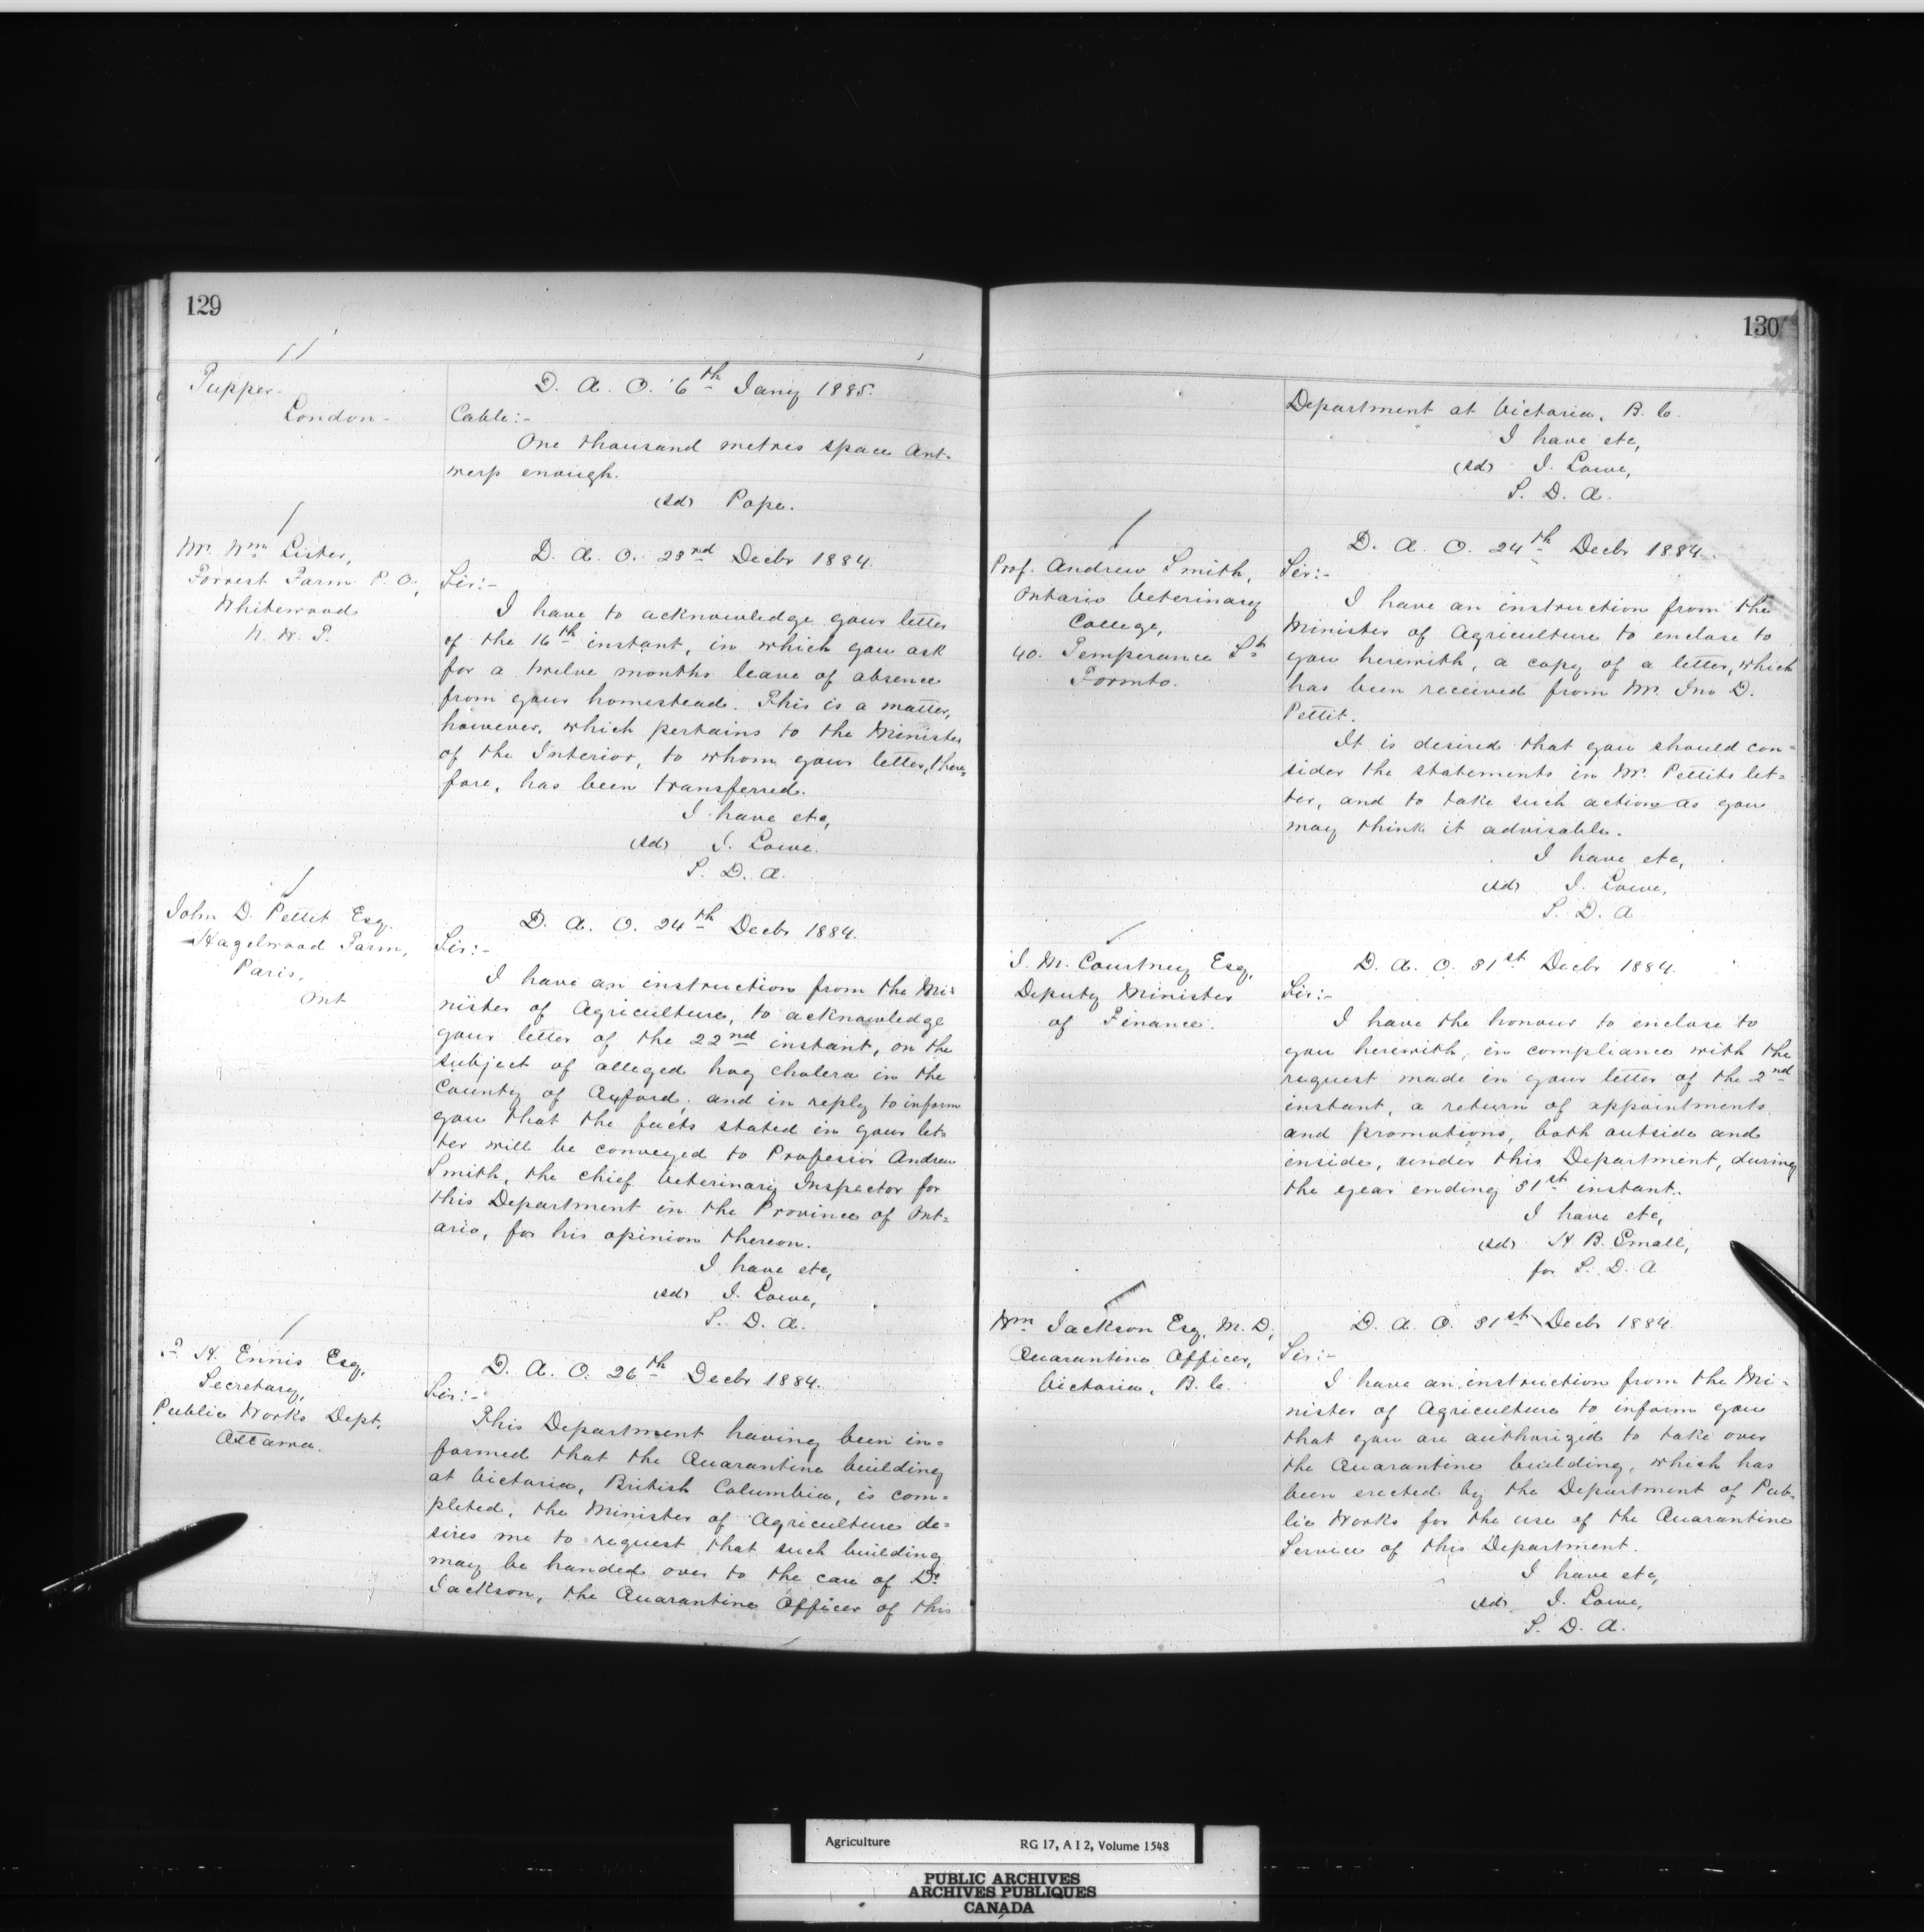 129
Tupper
London
D. A. O. 6th Jany 1885.
Cable:-
One thousand metres space Ant-
werp enough.
(sd) Pope.
Mr. Wm Lister,
Forrest Farm P. O.,
Whitewood
N. W. T.
D. A. O. 23rd Decbr 1884.
Sir:-
I have to acknowledge your letter
of the 16th instant, in which you ask
for a twelve months leave of absence
from your homestead. This is a matter,
however, which pertains to the Minister
of the Interior, to whom your letter, there-
fore, has been transferred.
I have etc,
(sd) J. Lowe.
S. D. A.
John D. Pettit Esq.
Hagelwood Farm,
Paris,
Ont
D. A. O. 24th Decbr 1884.
Sir:-
I have an instruction from the Mi-
nister of Agriculture, to acknowledge
your letter of the 22nd instant, on the
subject of alleged hog cholera in the
County of Oxford; and in reply to inform
you that the facts stated in your let-
ter will be conveyed to Professor Andrew
Smith, the chief Veterinary Inspector for
this Department in the Province of Ont-
ario, for his opinion thereon.
I have etc,
(sd) J. Lowe,
S. D. A.
F. H. Ennis Esq,
Secretary,
Public Works Dept.
Ottawa.
D. A. O. 26th Decbr 1884.
Sir:-
This Department having been in-
formed that the Quarantine building
at Victoria, British Columbia, is com-
pleted, the Minister of Agriculture de-
sires me to request that such building
may be handed over to the care of Dr.
Jackson, the Quarantine Officer of this
130
Department at Victoria, B. C.
I have etc,
(sd) J. Lowe,
S. D. A.
Prof. Andrew Smith,
Ontario Veterinary
College,
40. Temperance St.
Toronto.
D. A. O. 24th Decbr 1884.
Sir:-
I have an instruction from the
Minister of Agriculture to enclose to
you herewith, a copy of a letter, which
has been received from Mr. Jno D.
Pettit.
It is desired that you should con-
sider the statements in Mr. Pettits let-
ter, and to take such action as you
may think it advisable.
I have etc,
(sd) J. Lowe,
S. D. A
J. M. Courtney Esq,
Deputy Minister
of Finance.
D. A. O. 31st Decbr 1884.
Sir:-
I have the honour to enclose to
you herewith, in compliance with the
request made in your letter of the 2nd
instant, a return of appointments
and promotions, both outside and
inside, under this Department, during
the year ending 31st instant.
I have etc,
(sd) H. B. Small,
for S. D. A
Wm Jackson Esq, M. D,
Quarantine Officer,
Victoria, B. C.
D. A. O. 31st Decbr 1884.
Sir:-
I have an instruction from the Mi-
nister of Agriculture to inform you
that you are authorized to take over
the Quarantine building, which has
been erected by the Department of Pub-
lic Works for the use of the Quarantine
Service of this Department.
I have etc,
(sd) J. Lowe,
S. D. A.
Agriculture RG 17, A I 2, Volume 1548
PUBLIC ARCHIVES
ARCHIVES PUBLIQUES
CANADA